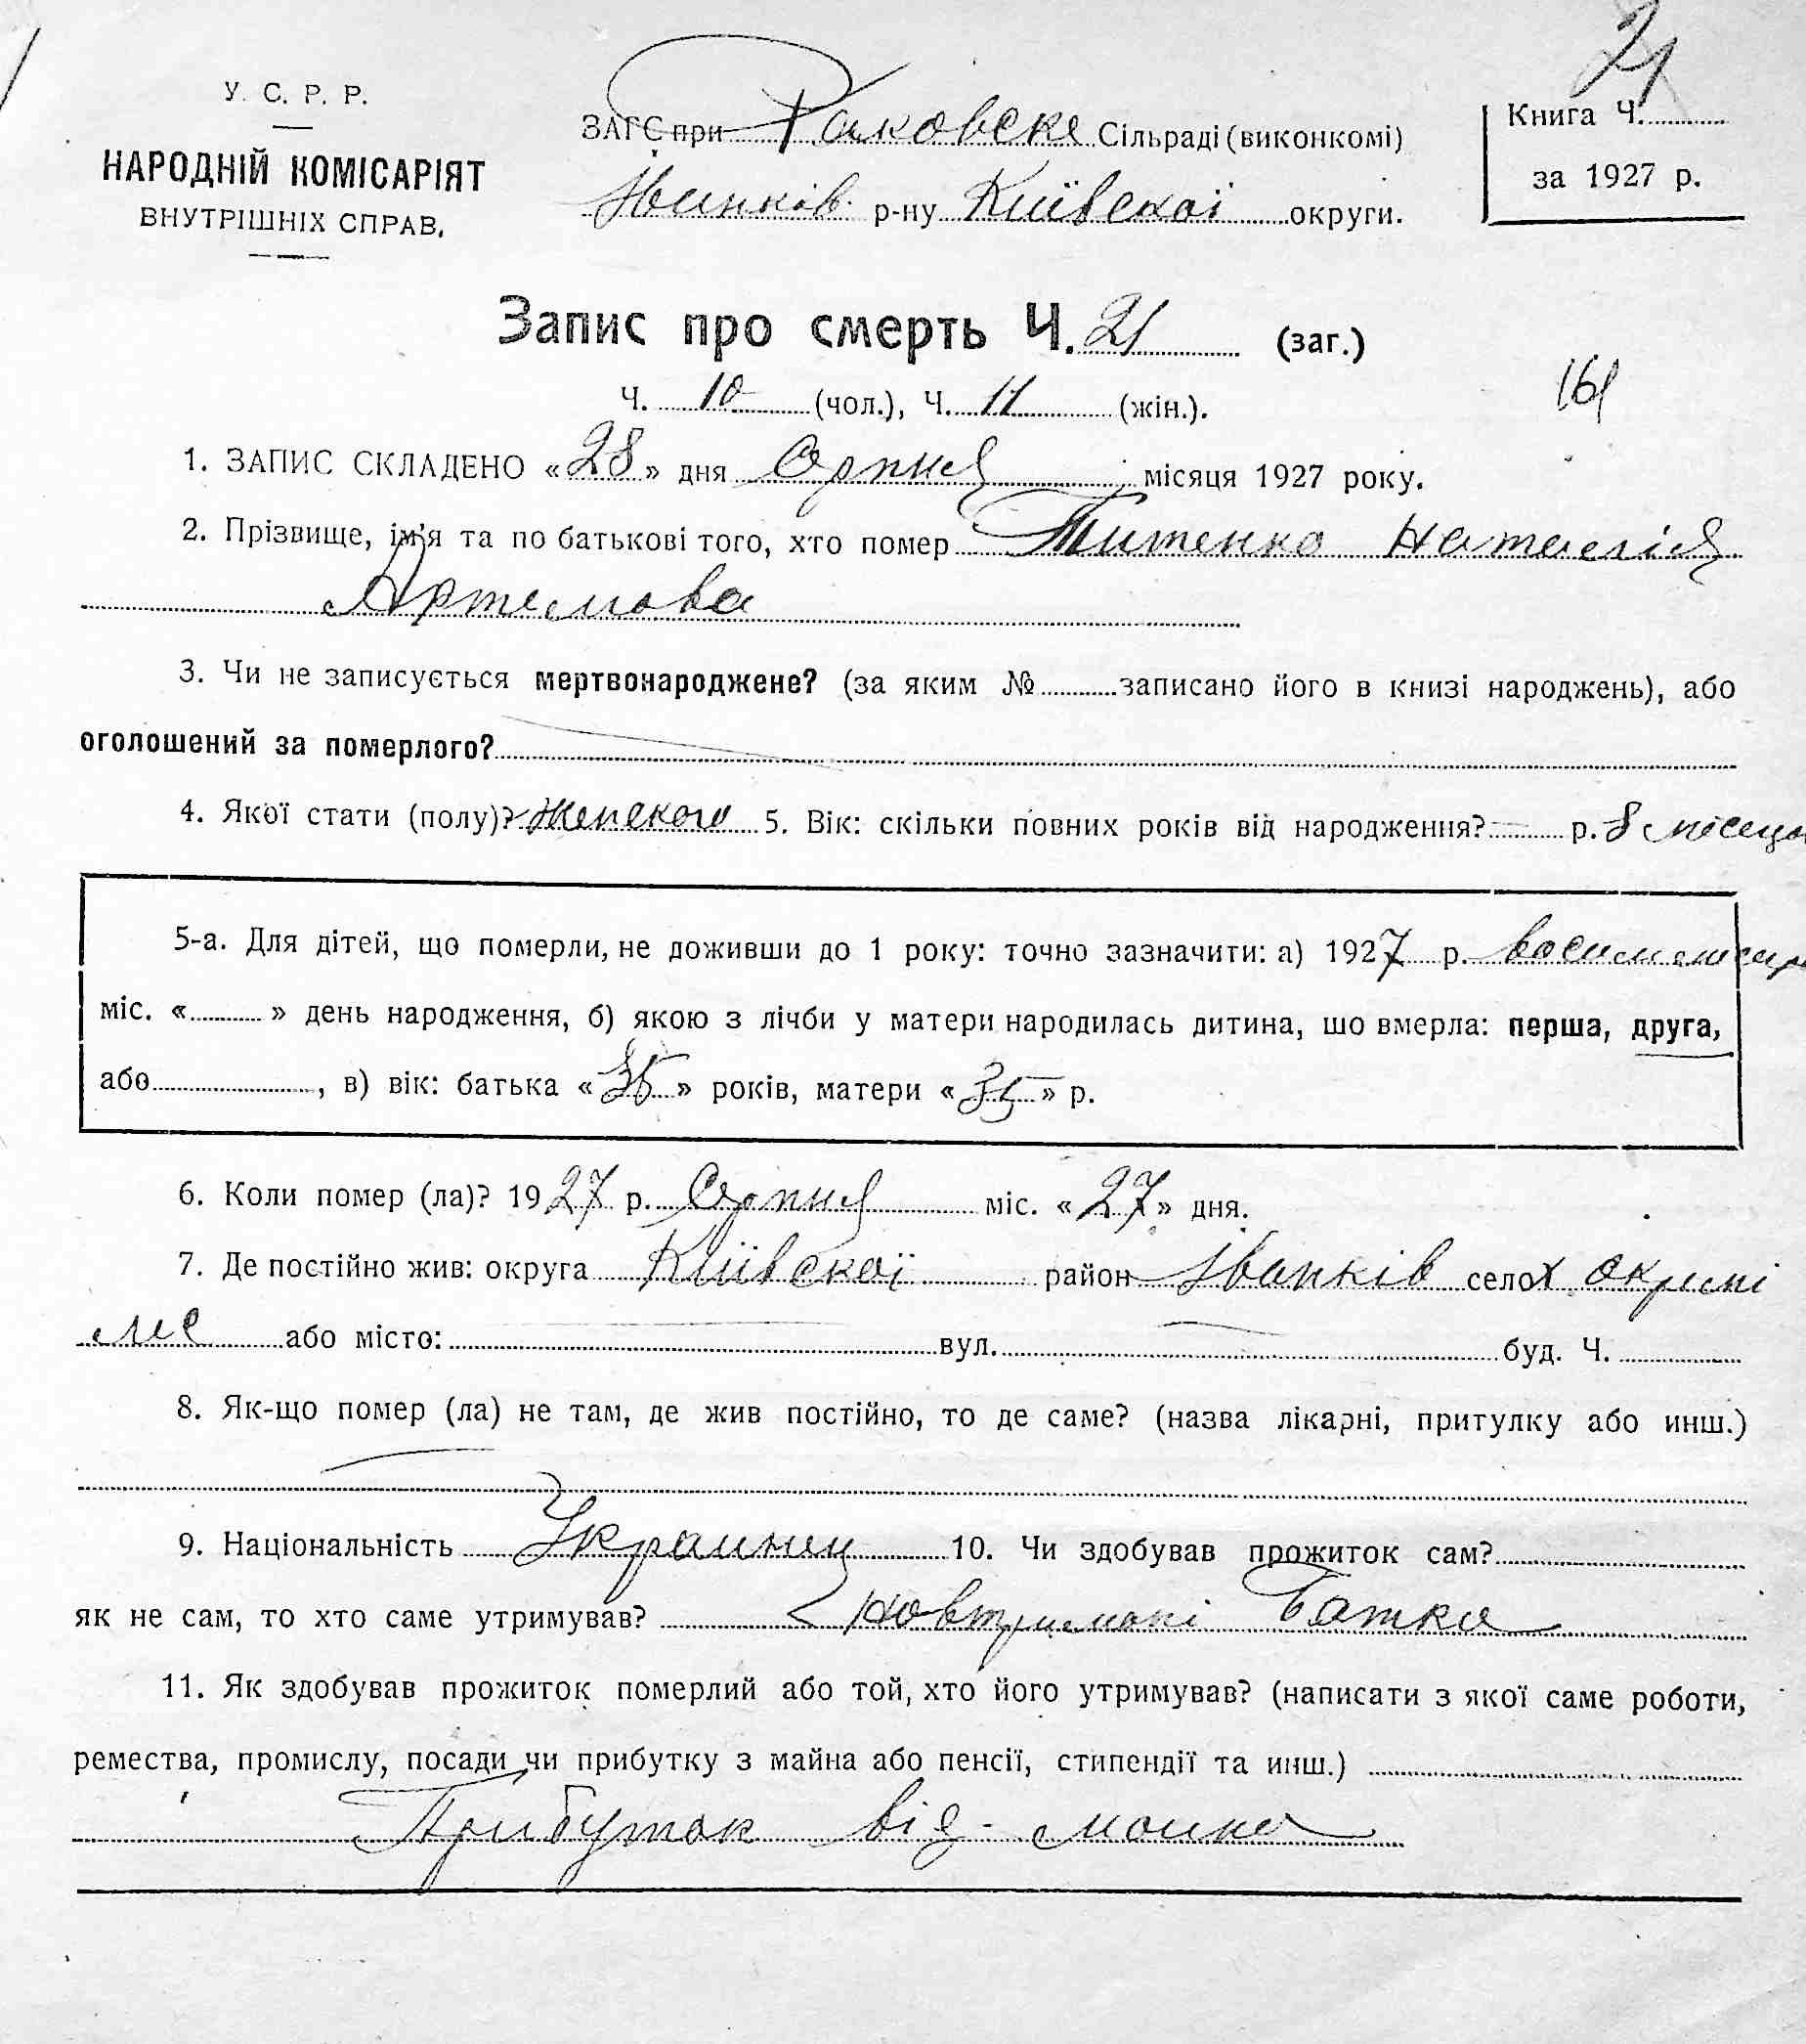 21
У. С. Р. Р.
НАРОДНІЙ КОМІСАРІЯТ
ВНУТРІШНІХ СПРАВ.
ЗАГС при Раковске Сільраді (виконкомі)
Іванків р-ну Київскої округи.
Книга Ч.
за 1927 р.
Запис про смерть Ч. 21 (заг.)
Ч. 10 (чол.), Ч. 11 (жін.).
161
1. ЗАПИС СКЛАДЕНО «28» дня Серпня місяця 1927 року.
2. Прізвище, ім'я та по батькові того, хто помер Титенко Наталія
Артемова
3. Чи не записується мертвонароджене? (за яким № записано його в книзі народжень), або
оголошений за померлого?
4. Якої стати (полу)? Женского 5. Вік: скільки повних років від народження? р. 8 місяцов
5-а. Для дітей, що померли, не доживши до 1 року: точно зазначити: а) 1927 р.
міс. « » день народження, б) якою з лічби у матери народилась дитина, шо вмерла: перша, друга,
або , в) вік: батька «35» років, матери «35» р.
6. Коли помер (ла)? 1927 р. Серпня міс. «27» дня.
7. Де постійно жив: округа Київскої район Іванків село
або місто: вул. буд. Ч.
8. Як-що помер (ла) не там, де жив постійно, то де саме? (назва лікарні, притулку або инш.)
9. Національність Украинец 10. Чи здобував прожиток сам?
як не сам, то хто саме утримував? Батка
11. Як здобував прожиток померлий або той, хто його утримував? (написати з якої саме роботи,
ремества, промислу, посади чи прибутку з майна або пенсії, стипендії та инш.)
Прибуток від майна